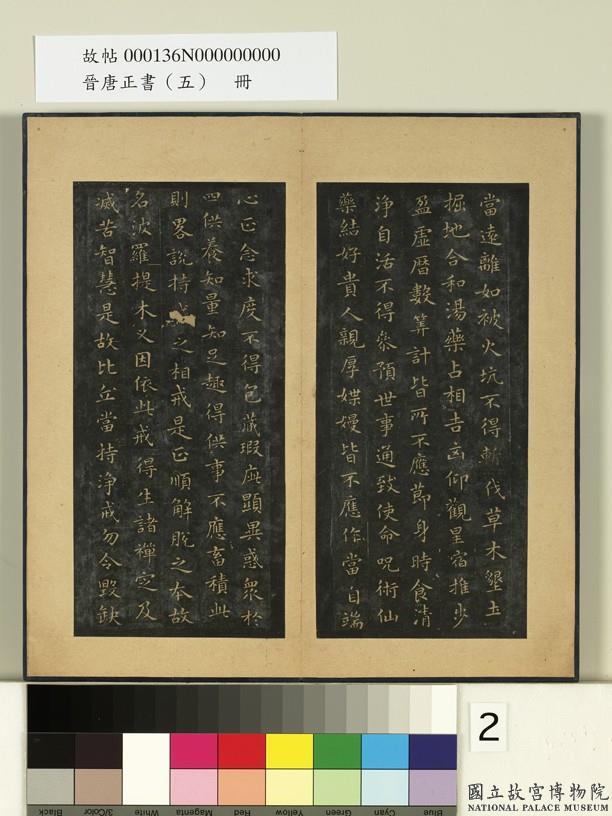 故帖 000136N000000000
晉唐正書（五） 冊
當遠離如被火坑不得斬伐草木墾土
掘地合和湯藥占相吉凶仰觀星宿推步
盈虛曆數筭計皆所不應節身時食清
淨自活不得叅預世事通致使命呪術仙
藥結好貴人親厚媟嫚皆不應作當自端
心正念求度不得包藏瑕疵顯異惑衆於
四供養知量知足趣得供事不應畜積此
則略說持之相戒是正順解脫之本故
名波羅提木叉因依此戒得生諸禪定及
滅苦智慧是故比丘當持淨戒勿令毀缺
2
國立故宮博物院
NATIONAL PALACE MUSEUM
Black
3/Color
White
Magenta
Red
Yellow
Green
Cyan
Blue